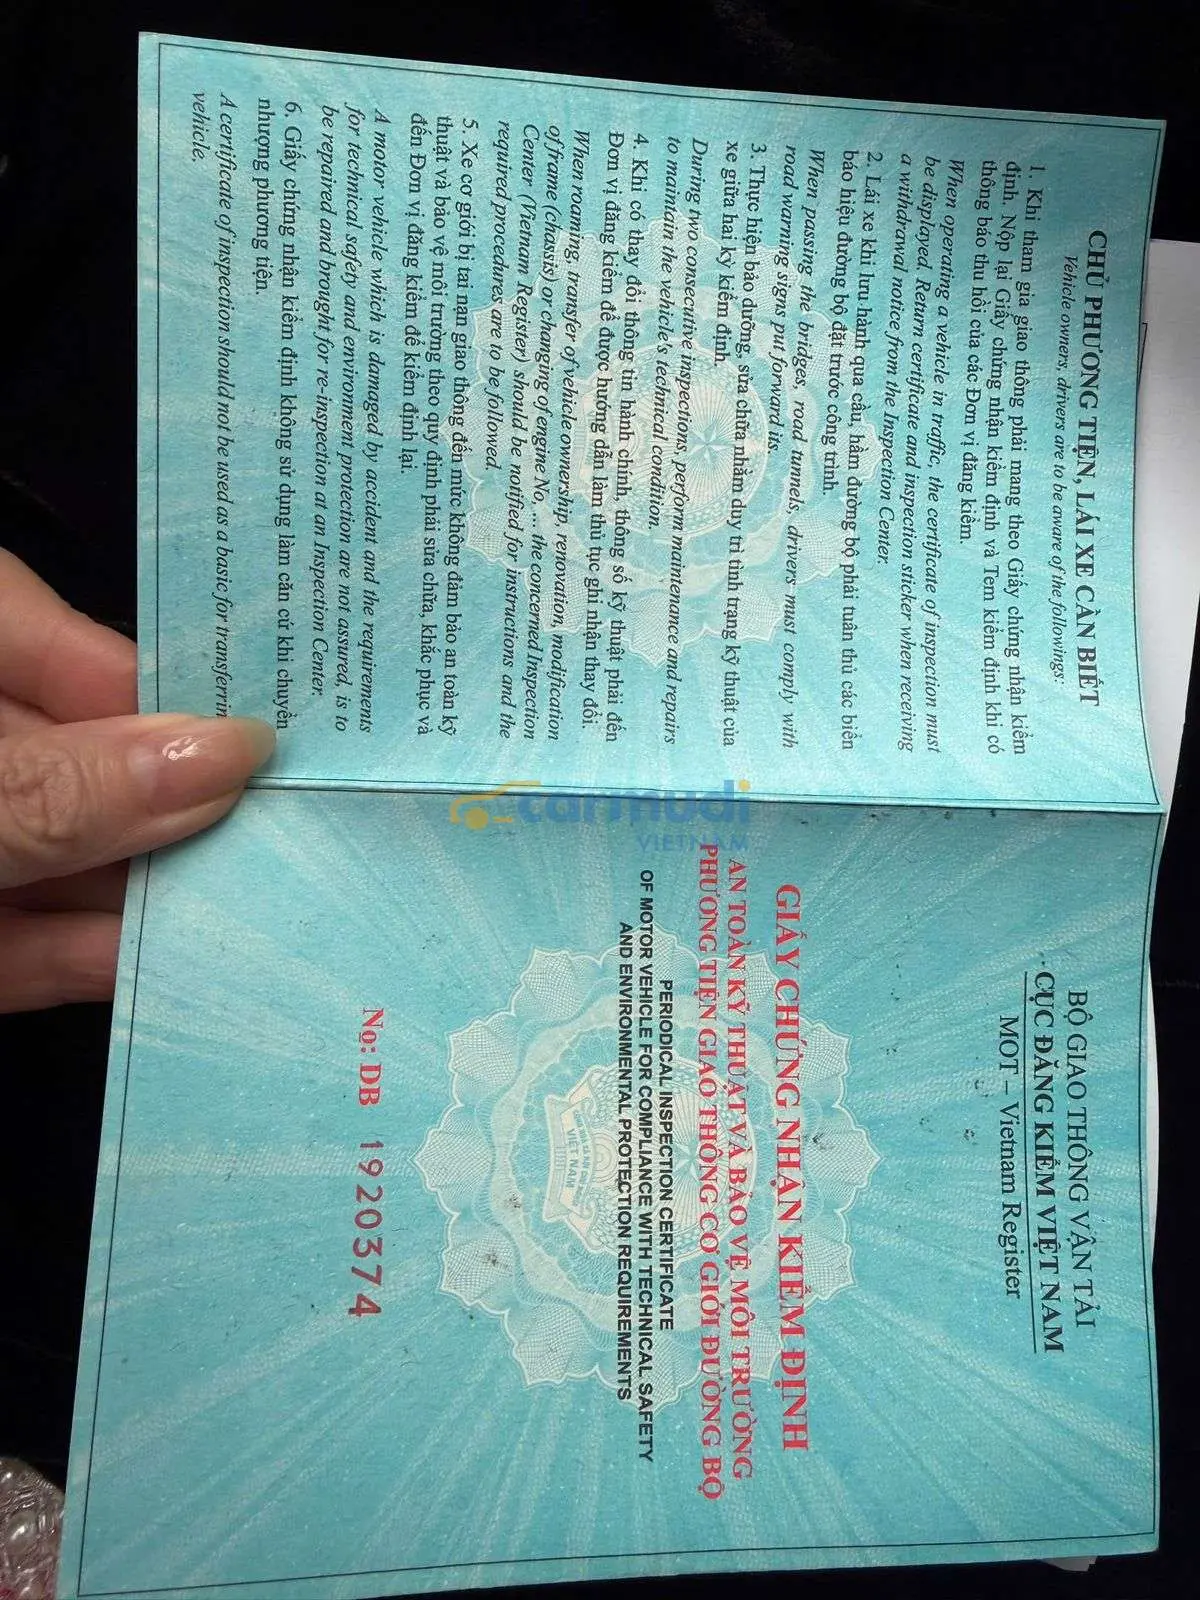 CHỦ PHƯƠNG TIỆN, LÁI XE CẦN BIẾT
Vehicle owners, drivers are to be aware of the followings:
1. Khi tham gia giao thông phải mang theo Giấy chứng nhận kiểm
định. Nộp lại Giấy chứng nhận kiểm định và Tem kiểm định khi có
thông báo thu hồi của các Đơn vị đăng kiểm.
When operating a vehicle in traffic, the certificate of inspection must
be displayed. Return certificate and inspection sticker when receiving
a withdrawal notice from the Inspection Center.
2. Lái xe khi lưu hành qua cầu, hầm đường bộ phải tuân thủ các biển
báo hiệu đường bộ đặt trước công trình.
When passing the bridges, road tunnels, drivers must comply with
road warning signs put forward its.
3. Thực hiện bảo dưỡng, sửa chữa nhằm duy trì tình trạng kỹ thuật của
xe giữa hai kỳ kiểm định.
During two consecutive inspections, perform maintenance and repairs
to maintain the vehicle's technical condition.
4. Khi có thay đổi thông tin hành chính, thông số kỹ thuật phải đến
Đơn vị đăng kiểm để được hướng dẫn làm thủ tục ghi nhận thay đổi.
When roaming, transfer of vehicle ownership, renovation, modification
of frame (chassis) or changing of engine No,... the concerned Inspection
Center (Vietnam Register) should be notified for instructions and the
required procedures are to be followed.
5. Xe cơ giới bị tai nạn giao thông đến mức không đảm bảo an toàn kỹ
thuật và bảo vệ môi trường theo quy định phải sửa chữa, khắc phục và
đến Đơn vị đăng kiểm để kiểm định lại.
A motor vehicle which is damaged by accident and the requirements
for technical safety and environment protection are not assured, is to
be repaired and brought for re-inspection at an Inspection Center.
6. Giấy chứng nhận kiểm định không sử dụng làm căn cứ khi chuyển
nhượng phương tiện.
A certificate of inspection should not be used as a basic for transferrin
vehicle.
carmudi
VIETNAM
BỘ GIAO THÔNG VẬN TẢI
CỤC ĐĂNG KIỂM VIỆT NAM
MOT – Vietnam Register
GIẤY CHỨNG NHẬN KIỂM ĐỊNH
AN TOÀN KỸ THUẬT VÀ BẢO VỆ MÔI TRƯỜNG
PHƯƠNG TIỆN GIAO THÔNG CƠ GIỚI ĐƯỜNG BỘ
PERIODICAL INSPECTION CERTIFICATE
OF MOTOR VEHICLE FOR COMPLIANCE WITH TECHNICAL SAFETY
AND ENVIRONMENTAL PROTECTION REQUIREMENTS
VIỆT NAM
No: DB 1920374